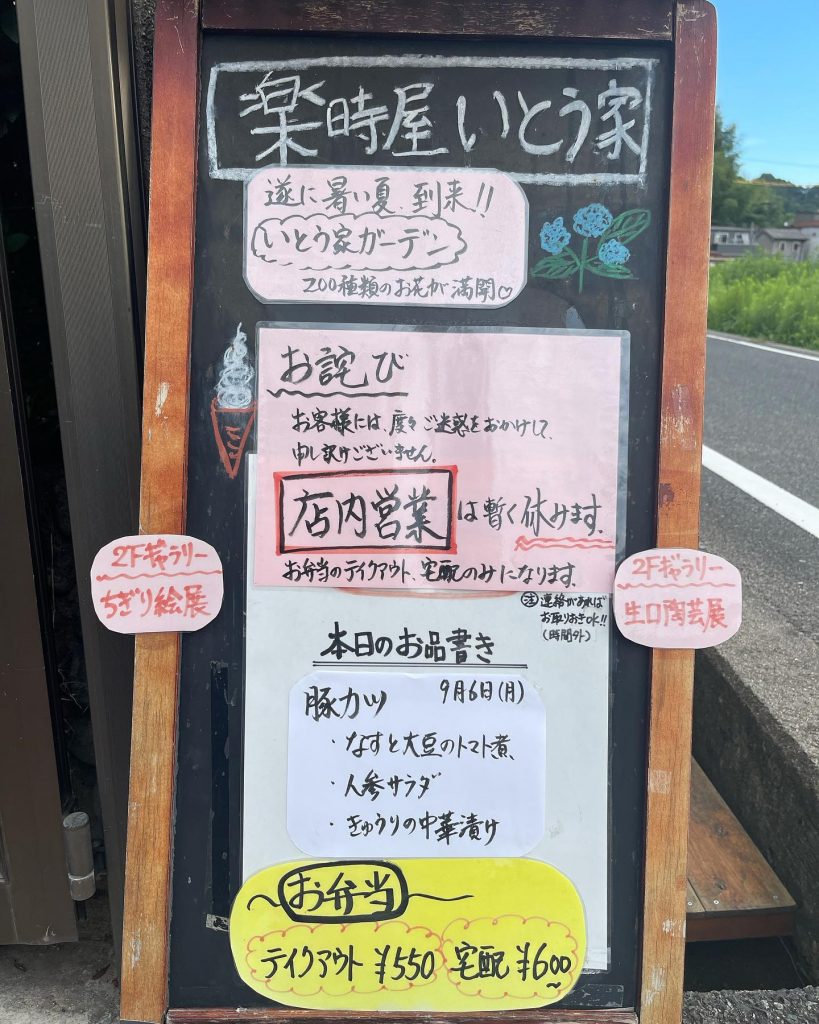 楽時屋いとう家
遂に暑い夏、到来!!
いとう家ガーデン
200種類のお花が満開♡
お詫び
お客様には、度々ご迷惑をおかけして、
申し訳けございません。
店内営業は暫く休みます。
お弁当のテイクアウト、宅配のみになります。
㊟連絡があれば
お取りおきOK!!
(時間外)
2Fギャラリー
ちぎり絵展
2Fギャラリー
生口陶芸展
本日のお品書き
9月6日(月)
豚カツ
・なすと大豆のトマト煮
・人参サラダ
・きゅうりの中華漬け
お弁当
テイクアウト ¥550 宅配 ¥600~